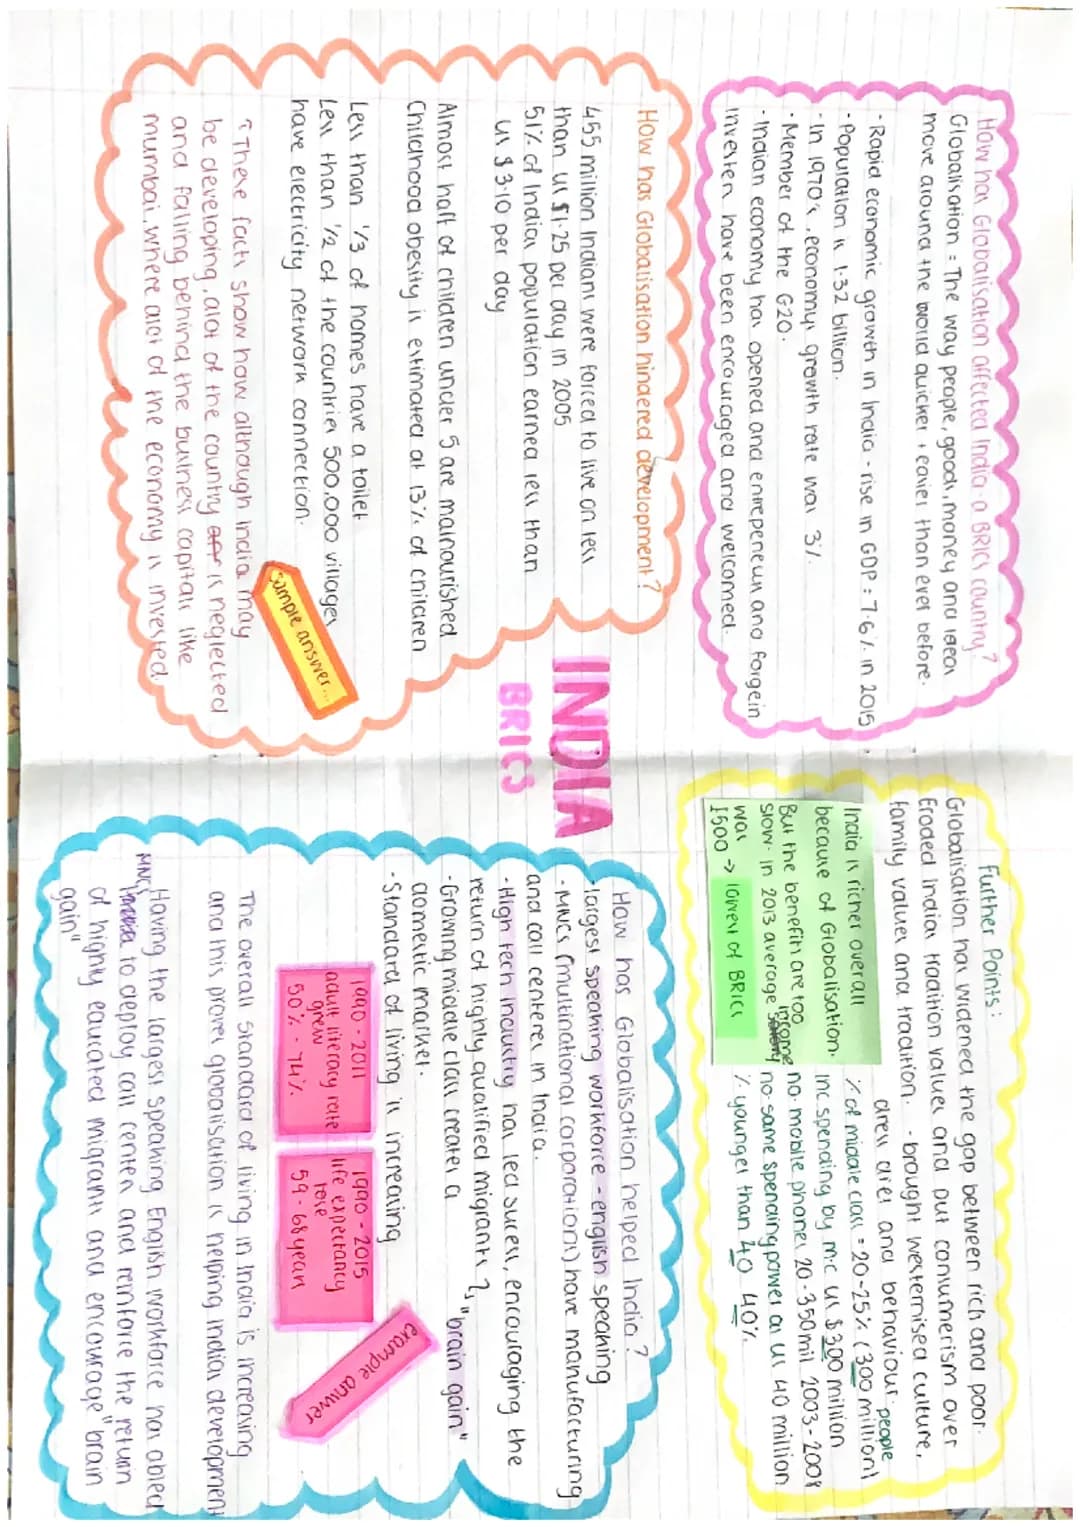 How has Globalisation affected India - a BRICs country?
Globalisation = The way people, goods, money and ideas
move around the world quicker + easier than ever before.
- Rapid economic growth in India - rise in GDP = 7.6% in 2015
- Population is 1.32 billion.
- In 1970's, economy's growth rate was 3%.
- Member of the G20.
- Indian economy has opened and entrepeneurs and forgein
investers have been encouraged and welcomed.
Further Points:
Globalisation has widened the gap between rich and poor.
Eroded Indias tradition values and put consumerism over
family values and tradition. - brought westernised culture,
dress areas and behaviour.
India is richer overall
because of Globalisation.
But the benefits are too
slow. in 2013 average income
was
1500 -> lowest of BRICs
people
% of middle class = 20-25% (300 million)
inc spending by m.c us $300 million
no. mobile phones 20-350mil 2003-2008
no. same spending power as us 40 million
% younger than 40 40%
INDIA
BRICS
How has Globalisation hindered development?
455 million Indians were forced to live on less
than us $1.25 per day in 2005
51% of Indias population earned less than
us $3.10 per day
Almost half of children under 5 are malnourished.
Childhood obesity is estimated at 13% of children
Less than 1/3 of homes have a toilet
Less than 1/2 of the countries 500,000 villages
have electricity network connection.
sample answer...
These facts show how although India may
be developing, alot of the country is neglected
and falling behind the business capitals like
mumbai where alot of the economy is invested.
How has Globalisation helped India?
- largest speaking workforce - english speaking
- MNCs (multinational corporations) have manufacturing
and call centeres in India.
- High tech industry has led sucess, encouraging the
return of highly qualified migrants
"brain gain"
- Growing middle class creates a
domestic market.
- Standard of living is increasing
1990 - 2011
adult literacy rate
grew
50% - 74%
1990 - 2015
life expectancy
rose
59 - 68 years
example answer
The overall standard of living in India is increasing
and this proves globalisation is helping indias development
Having the largest speaking English workforce has abled
MNCs to deploy call centers and reinforce the return
of highly educated migrants and encourage "brain
gain"